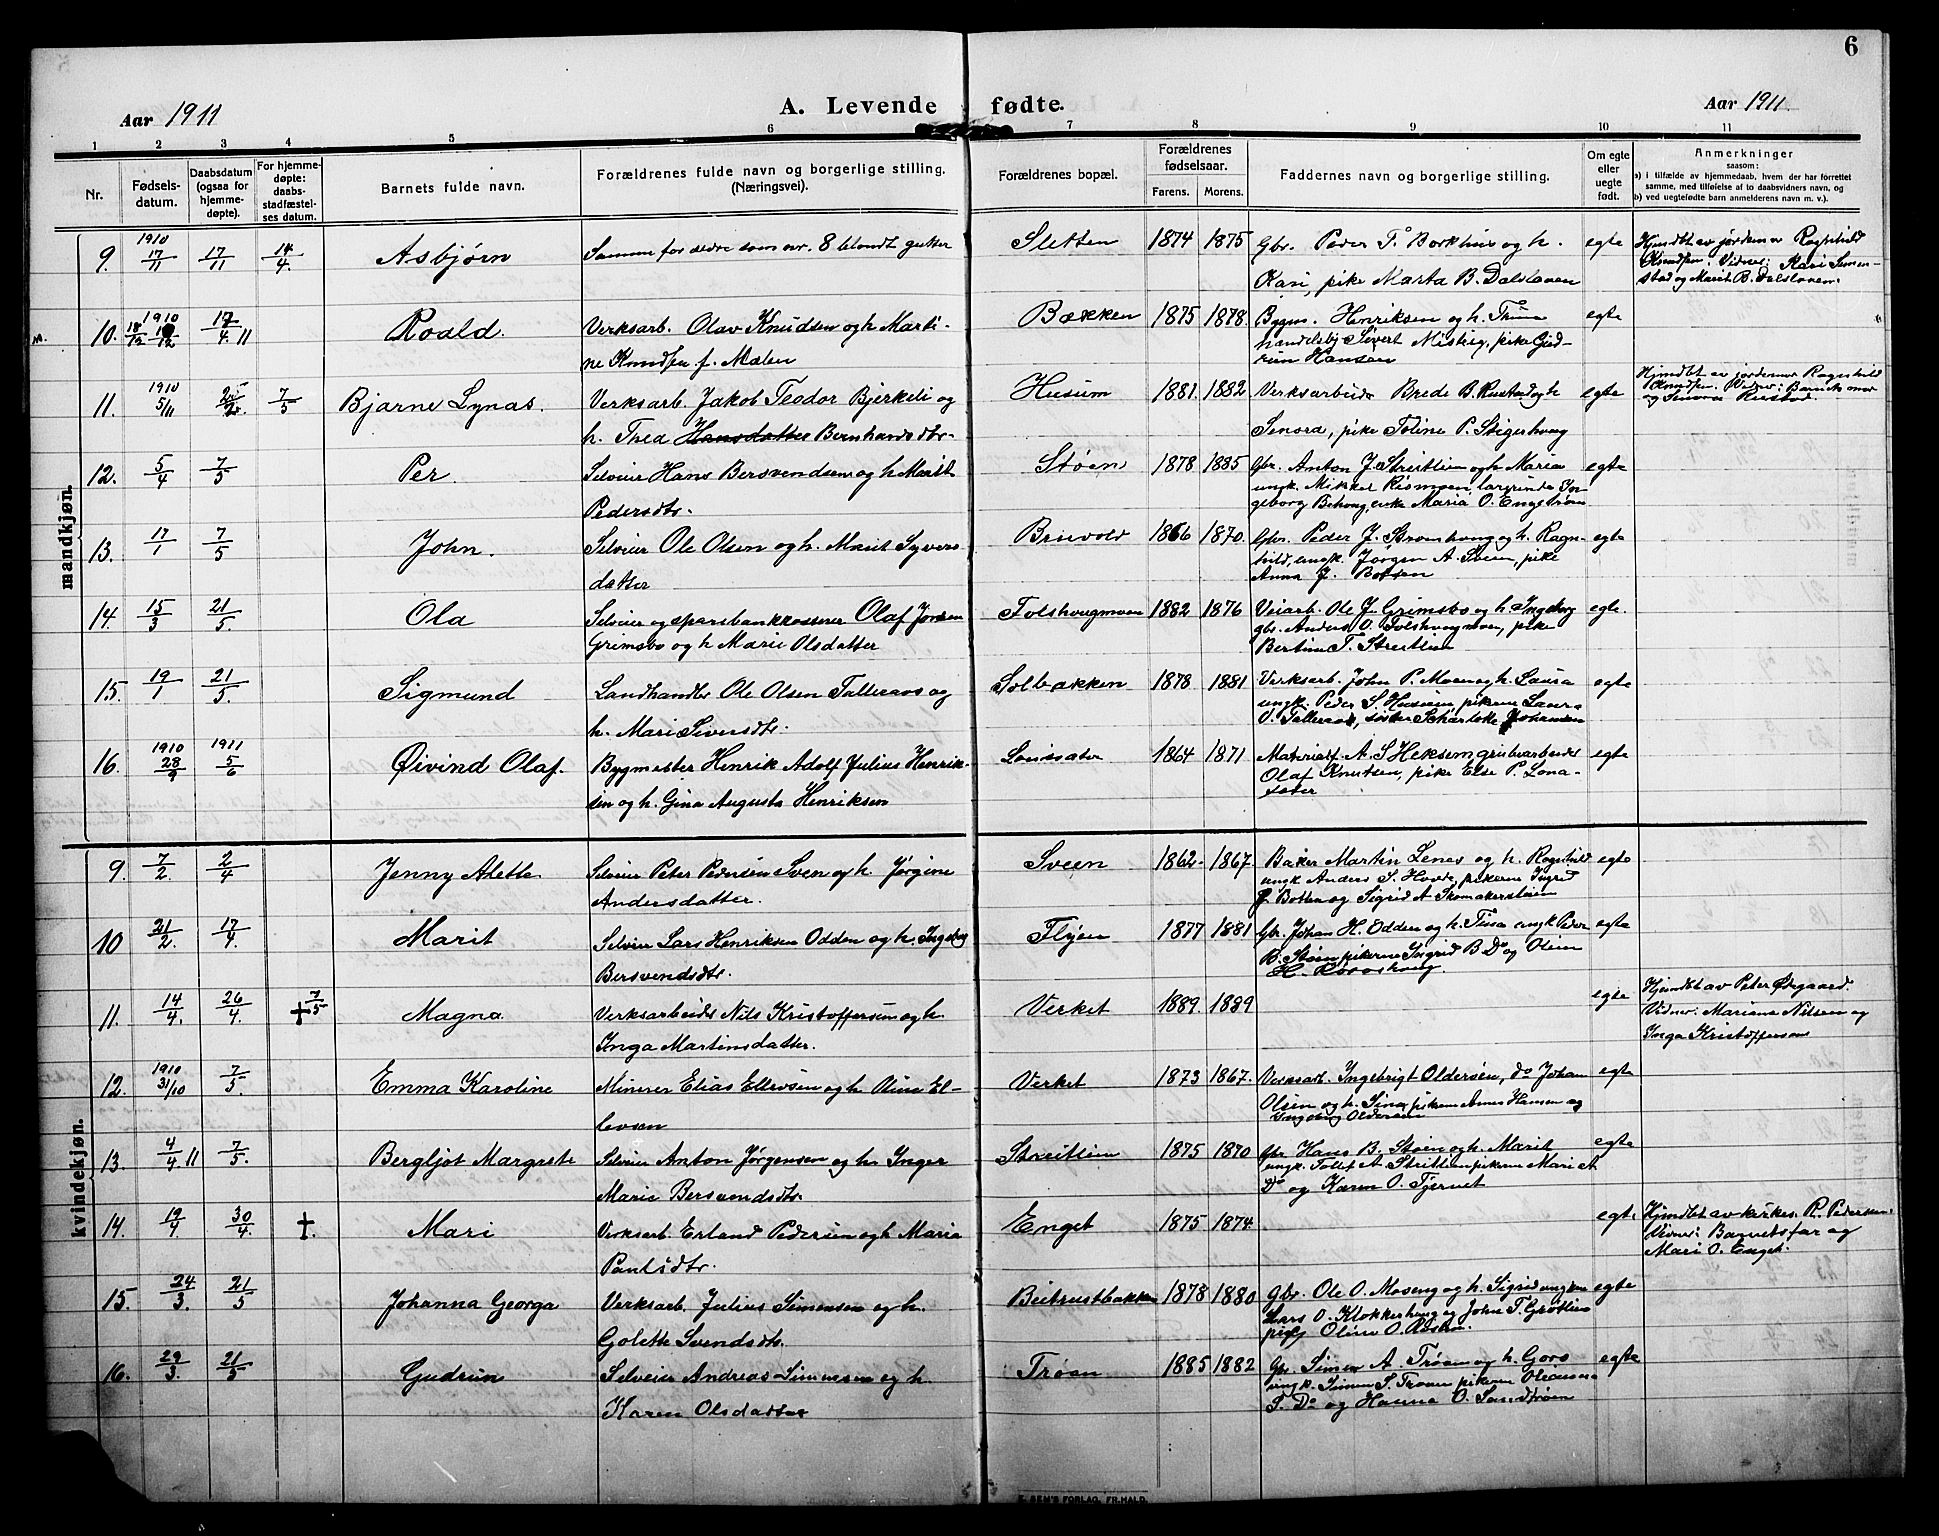 6
Aar 1911
A. Levende fødte.
Aar 1911.
1 2 3 4 5 6 7 8 9 10 11
Nr.
Fødsels-
datum.
Daabsdatum
(ogsaa for
hjemme-
døpte).
For hjemme-
døpte:
daabs-
stadfæstel-
ses datum.
Barnets fulde navn.
Forældrenes fulde navn og borgerlige stilling.
(Næringsvei).
Forældrenes bopæl.
Forældrenes
fødselsaar.
Farens. Morens.
Faddernes navn og borgerlige stilling.
Om egte
eller
uegte
født.
Anmerkninger
saasom:
a) i tilfælde av hjemmedaab, hvem der har forrettet
samme, med tilføielse af to daabsvidners navn, og
b) ved uegtefødte barn anmelderens navn m. v.).
mandkjøn.
9. 1910 17/11 17/11 14/4. Asbjørn Samme forældre som nr. 8 blandt gutter Sletten 1874 1875 Gbr. Peder T. Borkhus og h. egte Hjmdbt av jordemor Ragnhild
Kari, pike Marta B. Dalsløen
Knudsen. Vidner: Kari Simen-
stad og Marit B. Dalsløen.
10. 1910 18/12 17/4. 11 Roald. Verksarb. Olav Knudsen og h. Marti- Bækken 1875 1878. Bygm. Henriksen og h. egte
ne Knudsen f. Mælen
handelsbj. Sivert Misterg, pike Gud-
run Hansen
11. 1910 5/11 7/5 Bjarne Lynas. Verksarb. Jakob Teodor Bjerkeli og Husum 1881. 1882 Verksarbeider Brede B. Rustad og h. egte Hjmdbt av jordemor Ragnhild
h. Thea Hansdatter Bernhardsdtr.
Senora, pike Toline P. Stigerhaug
Knudsen. Vidner:
og Senora Rustad.
12. 5/4 7/5 Per Selveier Hans Bersvendsen og h. Marit Støen 1878 1885 Gbr. Anton J. Streitlien og h. Maria egte
Pedersdtr.
ungk. Mikkel Rismoen,
geborg Maria O. Engstrøen
13. 17/1 7/5 John. Selveier Ole Olsen og h. Marit Syvers Bruvold 1866 1870. Gbr. Peder J. Strømhaug og h. Ragn- egte
datter
hild, ungk. Jørgen A. Sveen, pike
Anna J. Botten
14. 15/3 21/5. Ola Selveier og sparebankkasserer Olaf Jonsen Tolshaugmoen 1882 1876 Veiarb. Ole J. Grimsbo og h. Ingeborg egte.
Grimsbo og h Marie Olsdatter
gbr. Anders O. Tolshaugmoen, pike
Bertine T. Streitlien
15. 19/1 21/5. Sigmund Landhandler Ole Olsen Talleraas og Solbakken 1878 1881 Verksarb. John P. Moen og h. Laura egte
h. Mari Siversdtr.
ungk. Peder S. Husum, pikerne Laura
O. Talleraas, søster Scharlotte Johansen
16. 1910 28/9 1911 5/6 Øivind Olaf. Bygmester Henrik Adolf Julius Henrik- 1864 1871 Materialf. A. S. Heksem, grubearbeider egte
sen og h. Gina Augusta Henriksen
Olaf Knutsen, pike Else P. Lona-
sæter
kvindekjøn.
9. 7/2. 2/4 Jenny Alette Selveier Peter Pedersen Sveen og h. Jørgine Sveen 1862. 1867. Baker Martin Lenes og h. Ragnhild egte
Andersdatter.
ungk Anders S. Hovde, pikerne Ingrid
J. Botten og Sigrid A Skomakerstuen
10 21/2. 17/4. Marit Selveier Lars Henriksen Odden og h. Ingeborg Flyen 1877 1881 Gbr. Johan H. Odden og h. Tina ungk Peder egte
Bersvendsdtr.
B. Støen pikerne Ingrid B Do og Oline
H. Røsoshaug.
11. 14/4. 26/4. + 7/5 Magna. Verksarbeider Nils Kristoffersen og h. Verket 1889. 1889 egte Hjmdbt av Peter Ødegaard.
Inga Martinsdatter.
Vidner: Mariane Nilsen og
Inga Kristoffersen
12. 1910 31/10 7/5. Emma Karoline Minerer Elias Ellevsen og h. Oline El- Verket 1873 1867. Verksarb. Ingebrigt Oldersøen, do Johan egte
levsen
Olsen og h. Sina, pikerne Hansen og
Ingeborg Oldersøen
13. 4/4 11 7/5. Bergljot Margrete Selveier Anton Jørgensen og h. Inger Streitlien 1875 1870 Gbr. Hans B. Støen og h. Marit egte
Marie Bersvendsdtr.
ungk. Tollef A Streitlien pikerne Mari A
Do og Karen O. Tjernet
14. 19/4 30/4. +. Mari Verksarb. Erland Pedersen og h. Maria Enget 1875 1874. egte Hjmdbt av kirkes. R. Pedersen.
Paulsdtr.
Vidner: Barnets far og
Mari O. Enget.
15. 24/3. 21/5 Johanna Georga Verksarb. Julius Simensen og h. Beitrustbakken 1878 1880 Gbr. Ole O. Moseng og h. Sigrid ungkm egte
Golette Svendsdtr.
Lars O. Klokkerhaug og John T. Grøtlien
Oline O.
16. 29/3. 21/5 Gudrun Selveier Andreas Simensen og h. Trøan 1885 1882 Gbr. Simen A. Trøen og h. Goro egte
Karen Olsdatter
ungk. Simen S. Trøen pikerne Oleanna
S. Do og Hanna O. Sandtrøen
E. SEM'S FORLAG, FR.HALD.